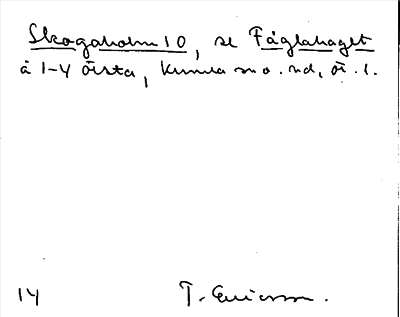 Skogaholm 10, se Fåglahaget
å 1-4 Örsta, Kumla sn o. hd, Ör. l.
14 T. Ericsson.